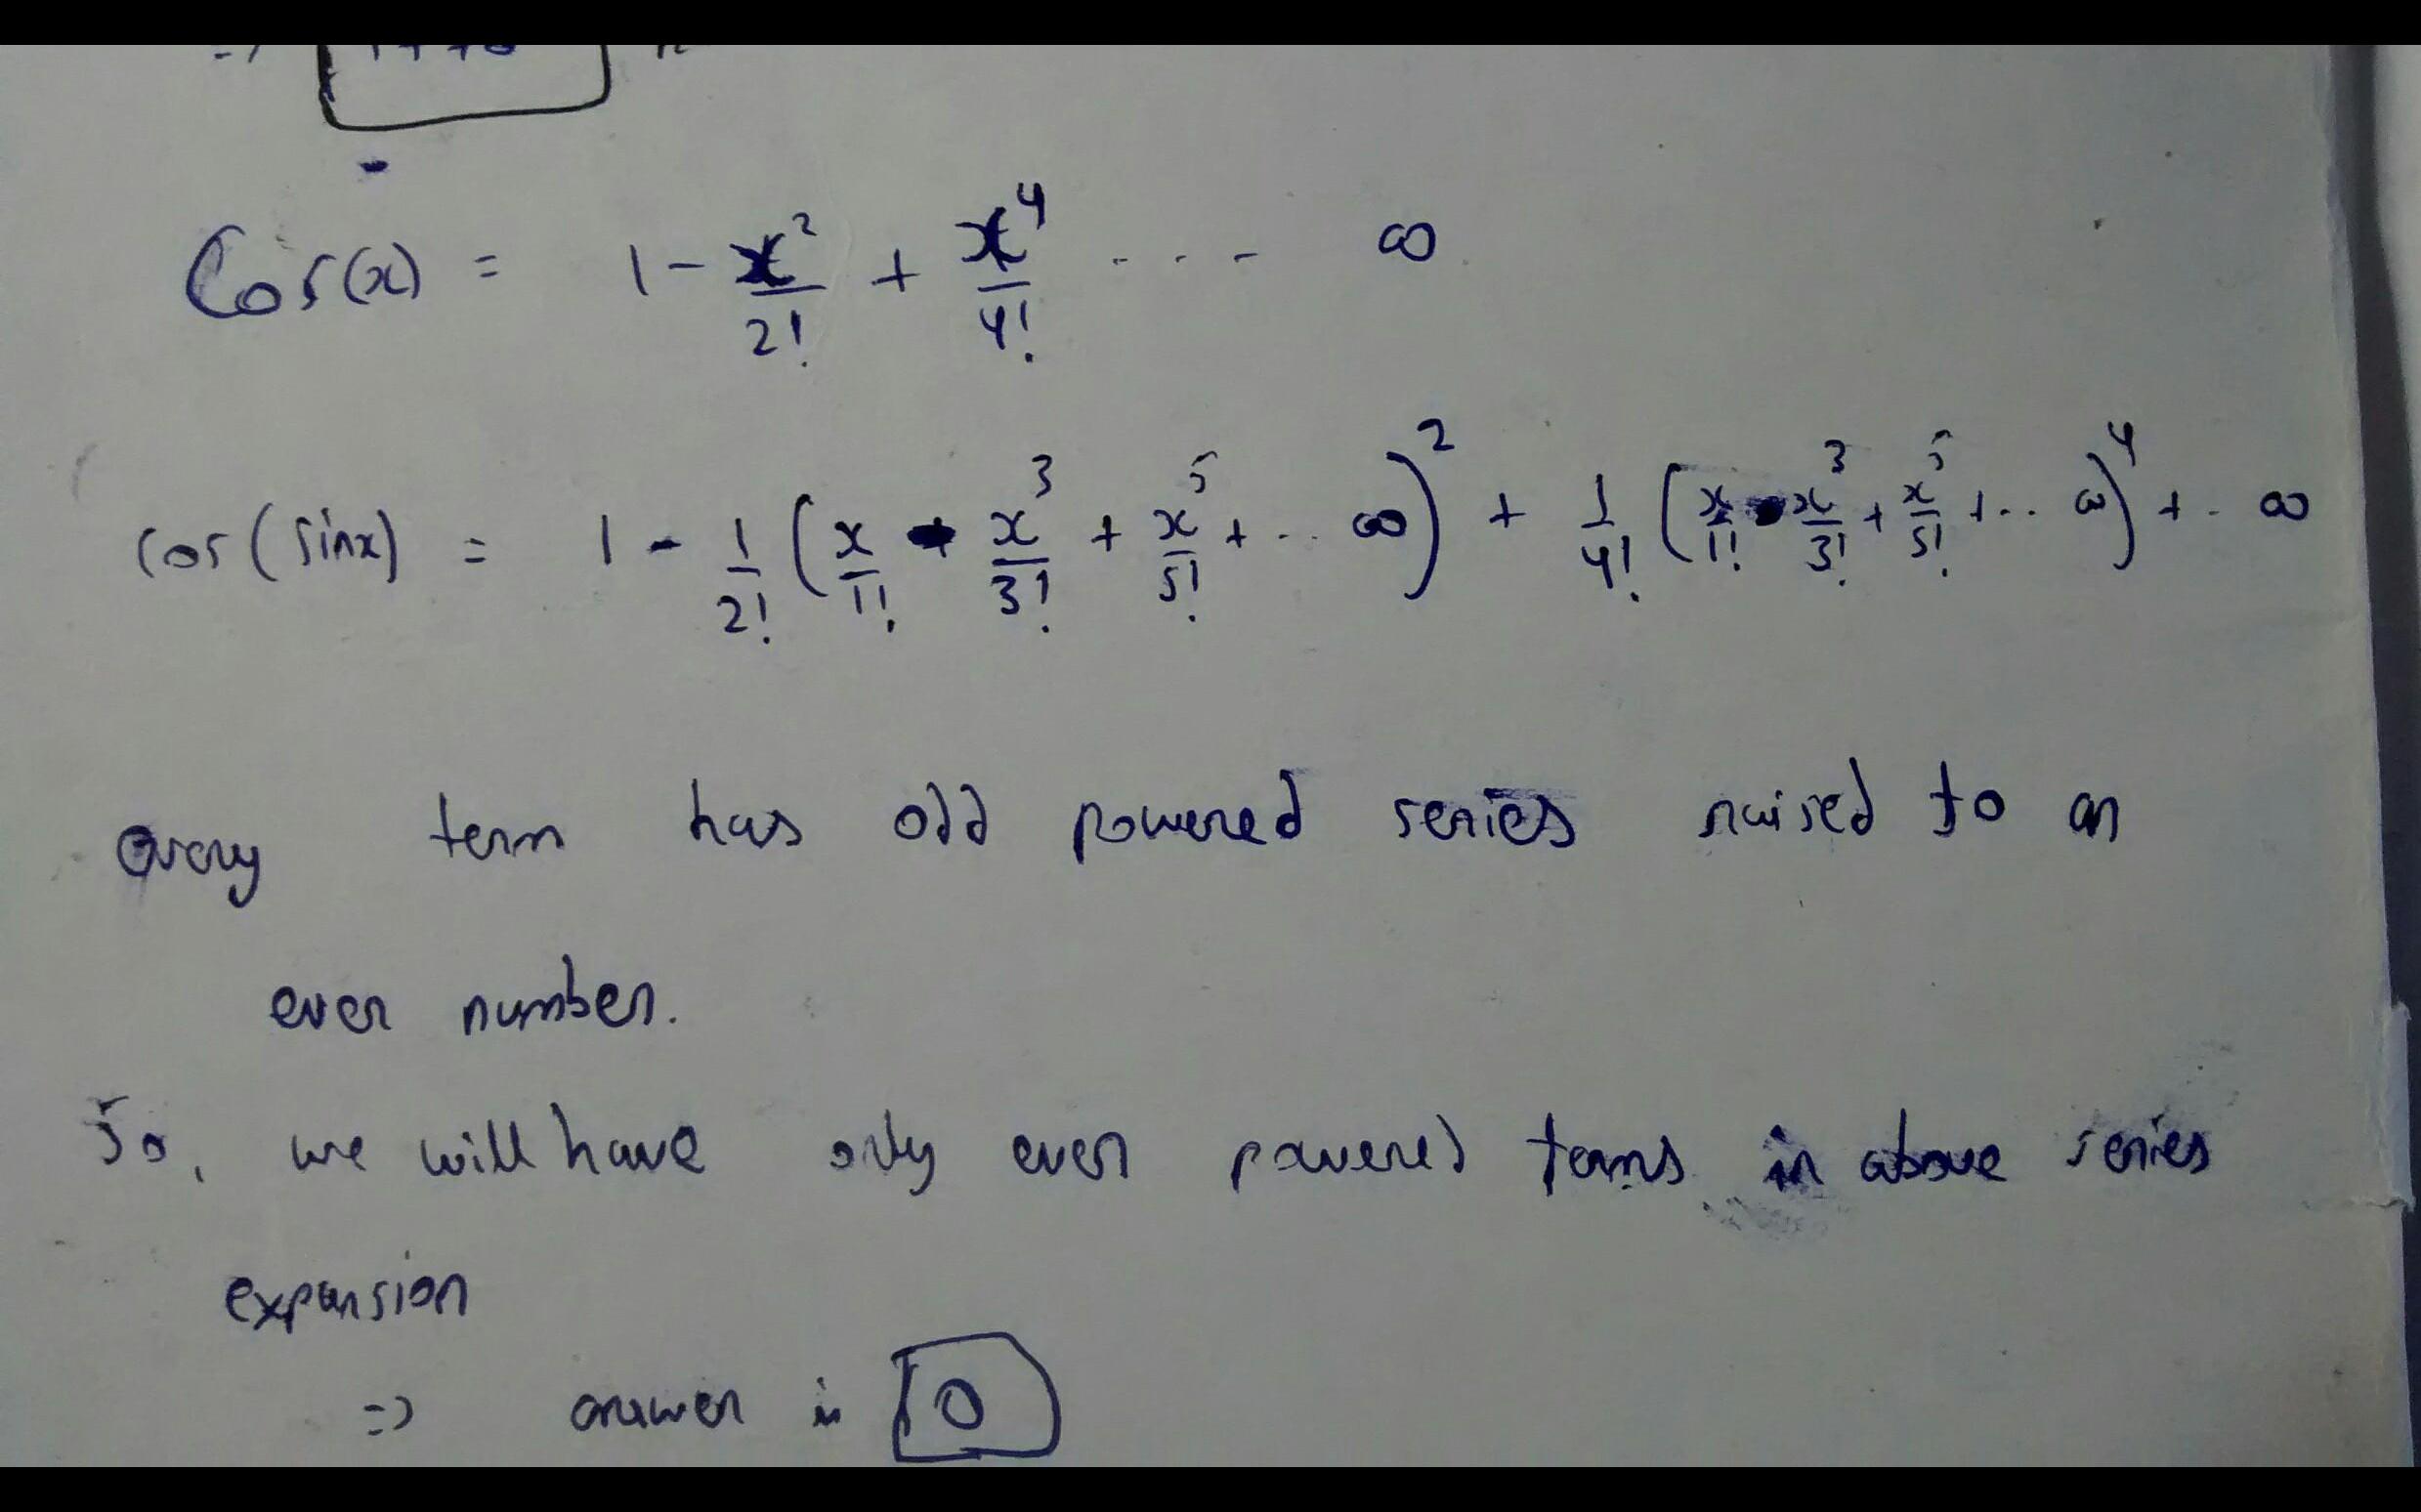 =>
Cos(x) = 1 - x²/2! + x⁴/4! ... ∞
cos(sinx) = 1 - 1/2! (x/1! - x³/3! + x⁵/5! + ... ∞)² + 1/4! (x/1! - x³/3! + x⁵/5! + ... ∞)⁴ + .. ∞
every term has odd powered series raised to an
even number.
So, we will have only even powered terms in above series
expansion
=> answer is 0